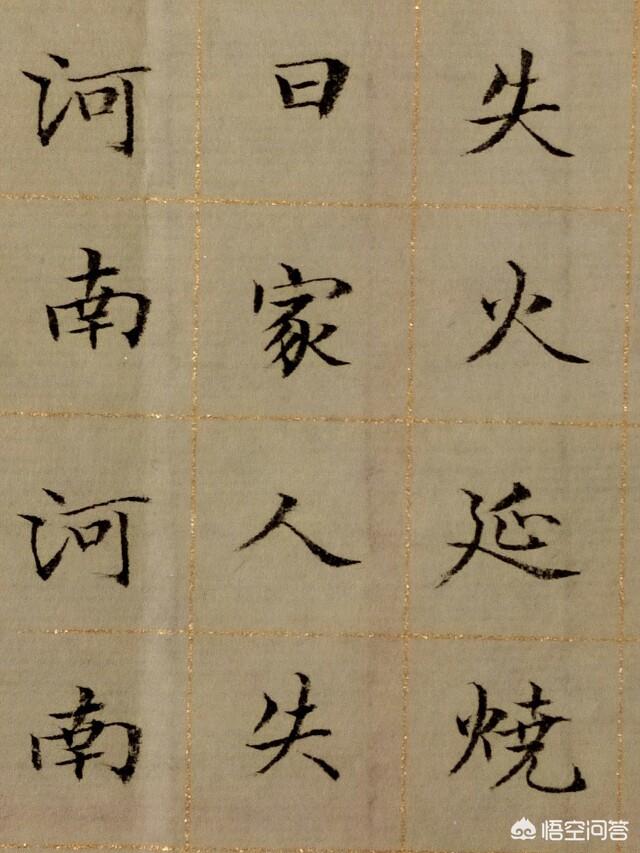 失火延焼
曰家人失
河南河南
悟空问答